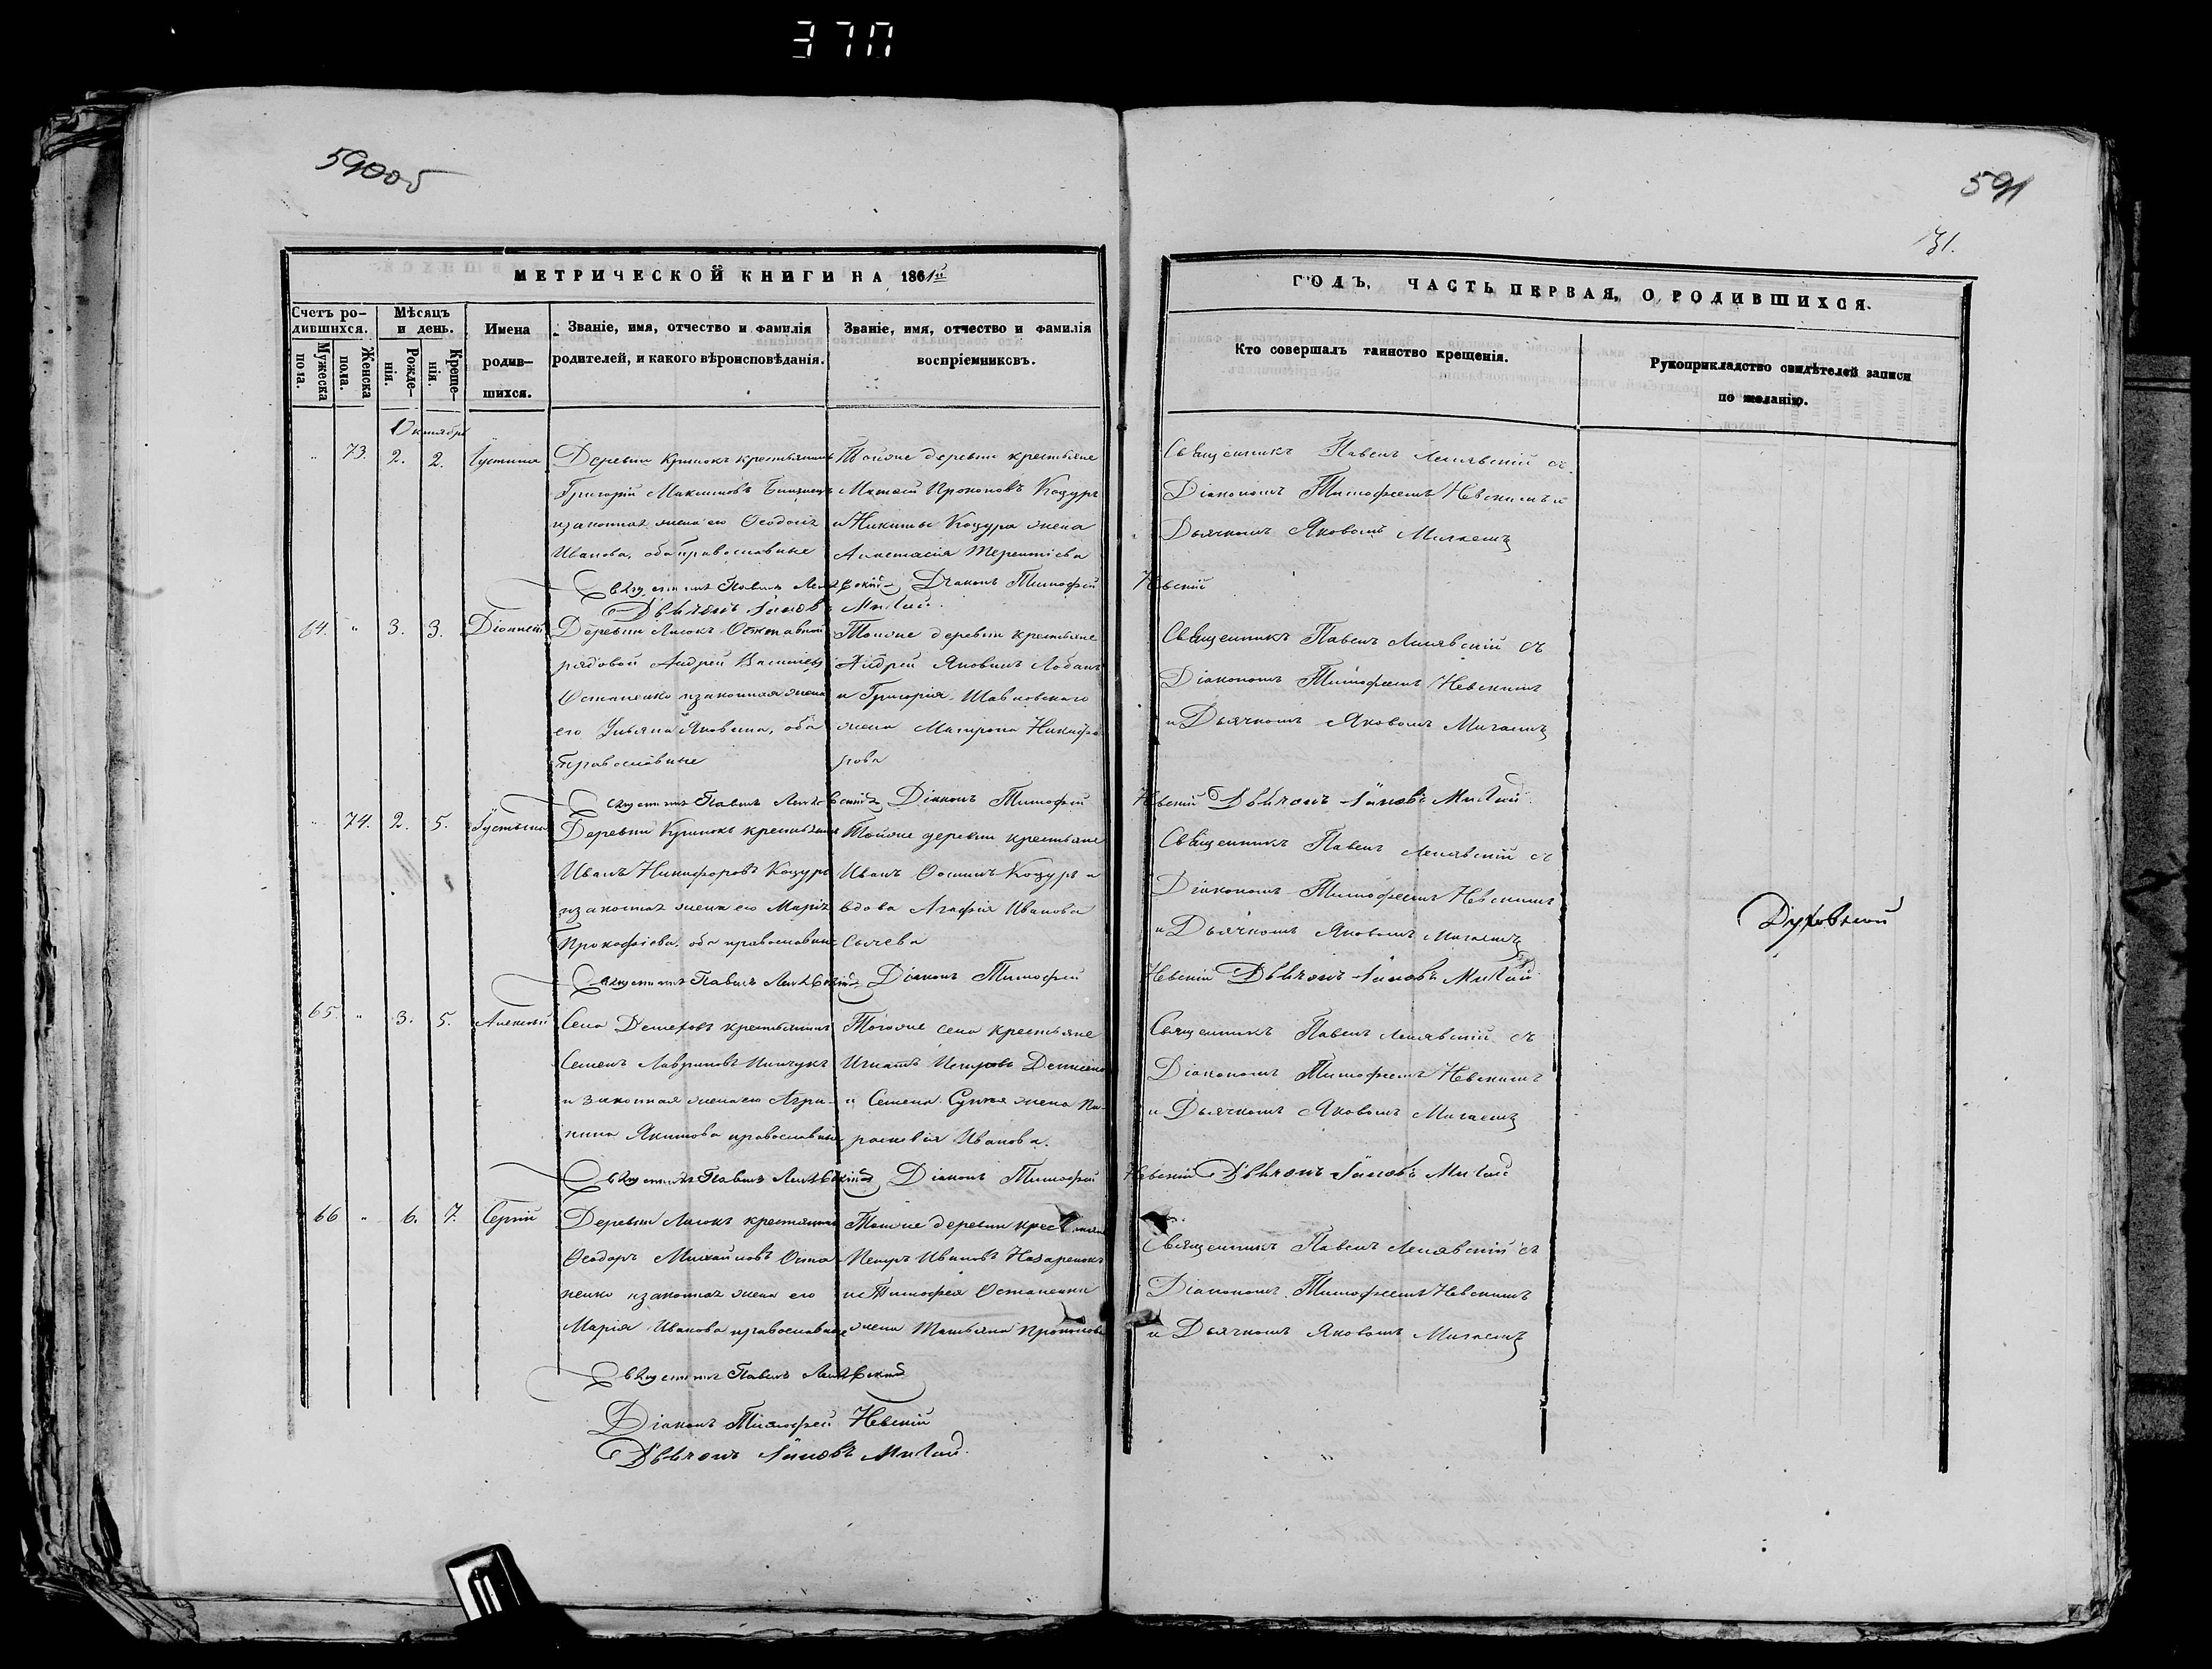 370
590об
591
131.
МЕТРИЧЕСКОЙ КНИГИ НА 1861й
ГОДЪ, ЧАСТЬ ПЕРВАЯ, О РОДИВШИХСЯ.
Счетъ родившихся.
Мужеска пола.
Женска пола.
Мѣсяцъ и день.
Рожденія.
Крещенія.
Имена родившихся.
Званіе, имя, отчество и фамилія
родителей, и какого вѣроисповѣданія.
Званіе, имя, отчество и фамилія
воспріемниковъ.
Кто совершалъ таинство крещенія.
Рукоприкладство свидѣтелей записи
по желанію.
Октябрь
" 73. 2. 2. Іустина
Деревни Кринокъ крестьянинъ
Григорій Максимовъ
изаконная жена его Ѳеодосія
Иванова, оба православные
Тойже деревни крестьяне
Матѳей Прокоповъ Коцуръ
и Никиты Коцура жена
Анастасія Терентіева
Священникъ ПавелъЛенявскій съ
Діакономъ Тимофеемъ Невскимъ и
Дьячкомъ Яковомъ Мигаемъ
Священникъ Павелъ Ленявскій Діаконъ Тимофей Невскій
Дьячокъ Іаковъ Мигай.
64. " 3. 3. Діонисій
Деревни Лисокъ Отставной
рядовой Андрей Васильевъ
Остапенко изаконная жена
его Ульяна Яковлева, оба
православные
Тойже деревни крестьяне
Андрей Яковлевъ Лобанъ
и Григорія Шавковскаго
жена Матрона Никифорова
Священникъ Павелъ Ленявскій съ
Діакономъ Тимофеемъ Невскимъ
и Дьячкомъ Яковомъ Мигаемъ
Священникъ Павелъ Ленявскій Діаконъ Тимофей Невскій Дьячокъ Іаковъ Мигай
" 74. 2. 5. Іустина
Деревни Кринокъ крестьянинъ
Иванъ Никифоровъ Коцуръ
изаконная жена его Марія
Прокофіева, оба православные
Тойже деревни крестьяне
Иванъ Коцуръ и
вдова Агафія Иванова
Сычева
Священникъ Павелъ Ленявскій съ
Діакономъ Тимофеемъ Невскимъ
и Дьячкомъ Яковомъ Мигаемъ
Духовный
Священникъ Павелъ Ленявскій Діаконъ Тимофей Невскій Дьячокъ Іаковъ Мигай
65. " 3. 5. Алексѣй
Села крестьянинъ
Семенъ Лавриновъ Пинчукъ
и законная жена его Агрипина
Якимова православные
Тогоже села крестьяне
Игнатъ Петровъ
и Семена жена Параскевія
Иванова.
Священникъ Павелъ Ленявскій съ
Діакономъ Тимофеемъ Невскимъ
и Дьячкомъ Яковомъ Мигаемъ
Священникъ Павелъ Ленявскій Діаконъ Тимофей Невскій Дьячокъ Іаковъ Мигай
66 " 6. 7. Сергій
Деревни Лисокъ крестьянинъ
Ѳеодоръ Михайловъ Остапенко
изаконная жена его
Марія Иванова православные
Тойже деревни крестьяне
Петръ Ивановъ Назаренокъ
и Тимофея Остапенки
жена Татьяна Прокопова
Священникъ Павелъ Ленявскій съ
Діакономъ Тимофеемъ Невскимъ
и Дьячкомъ Яковомъ Мигаемъ
Священникъ Павелъ Ленявскій
Діаконъ Тимофей Невскій
Дьячокъ Іаковъ Мигай.